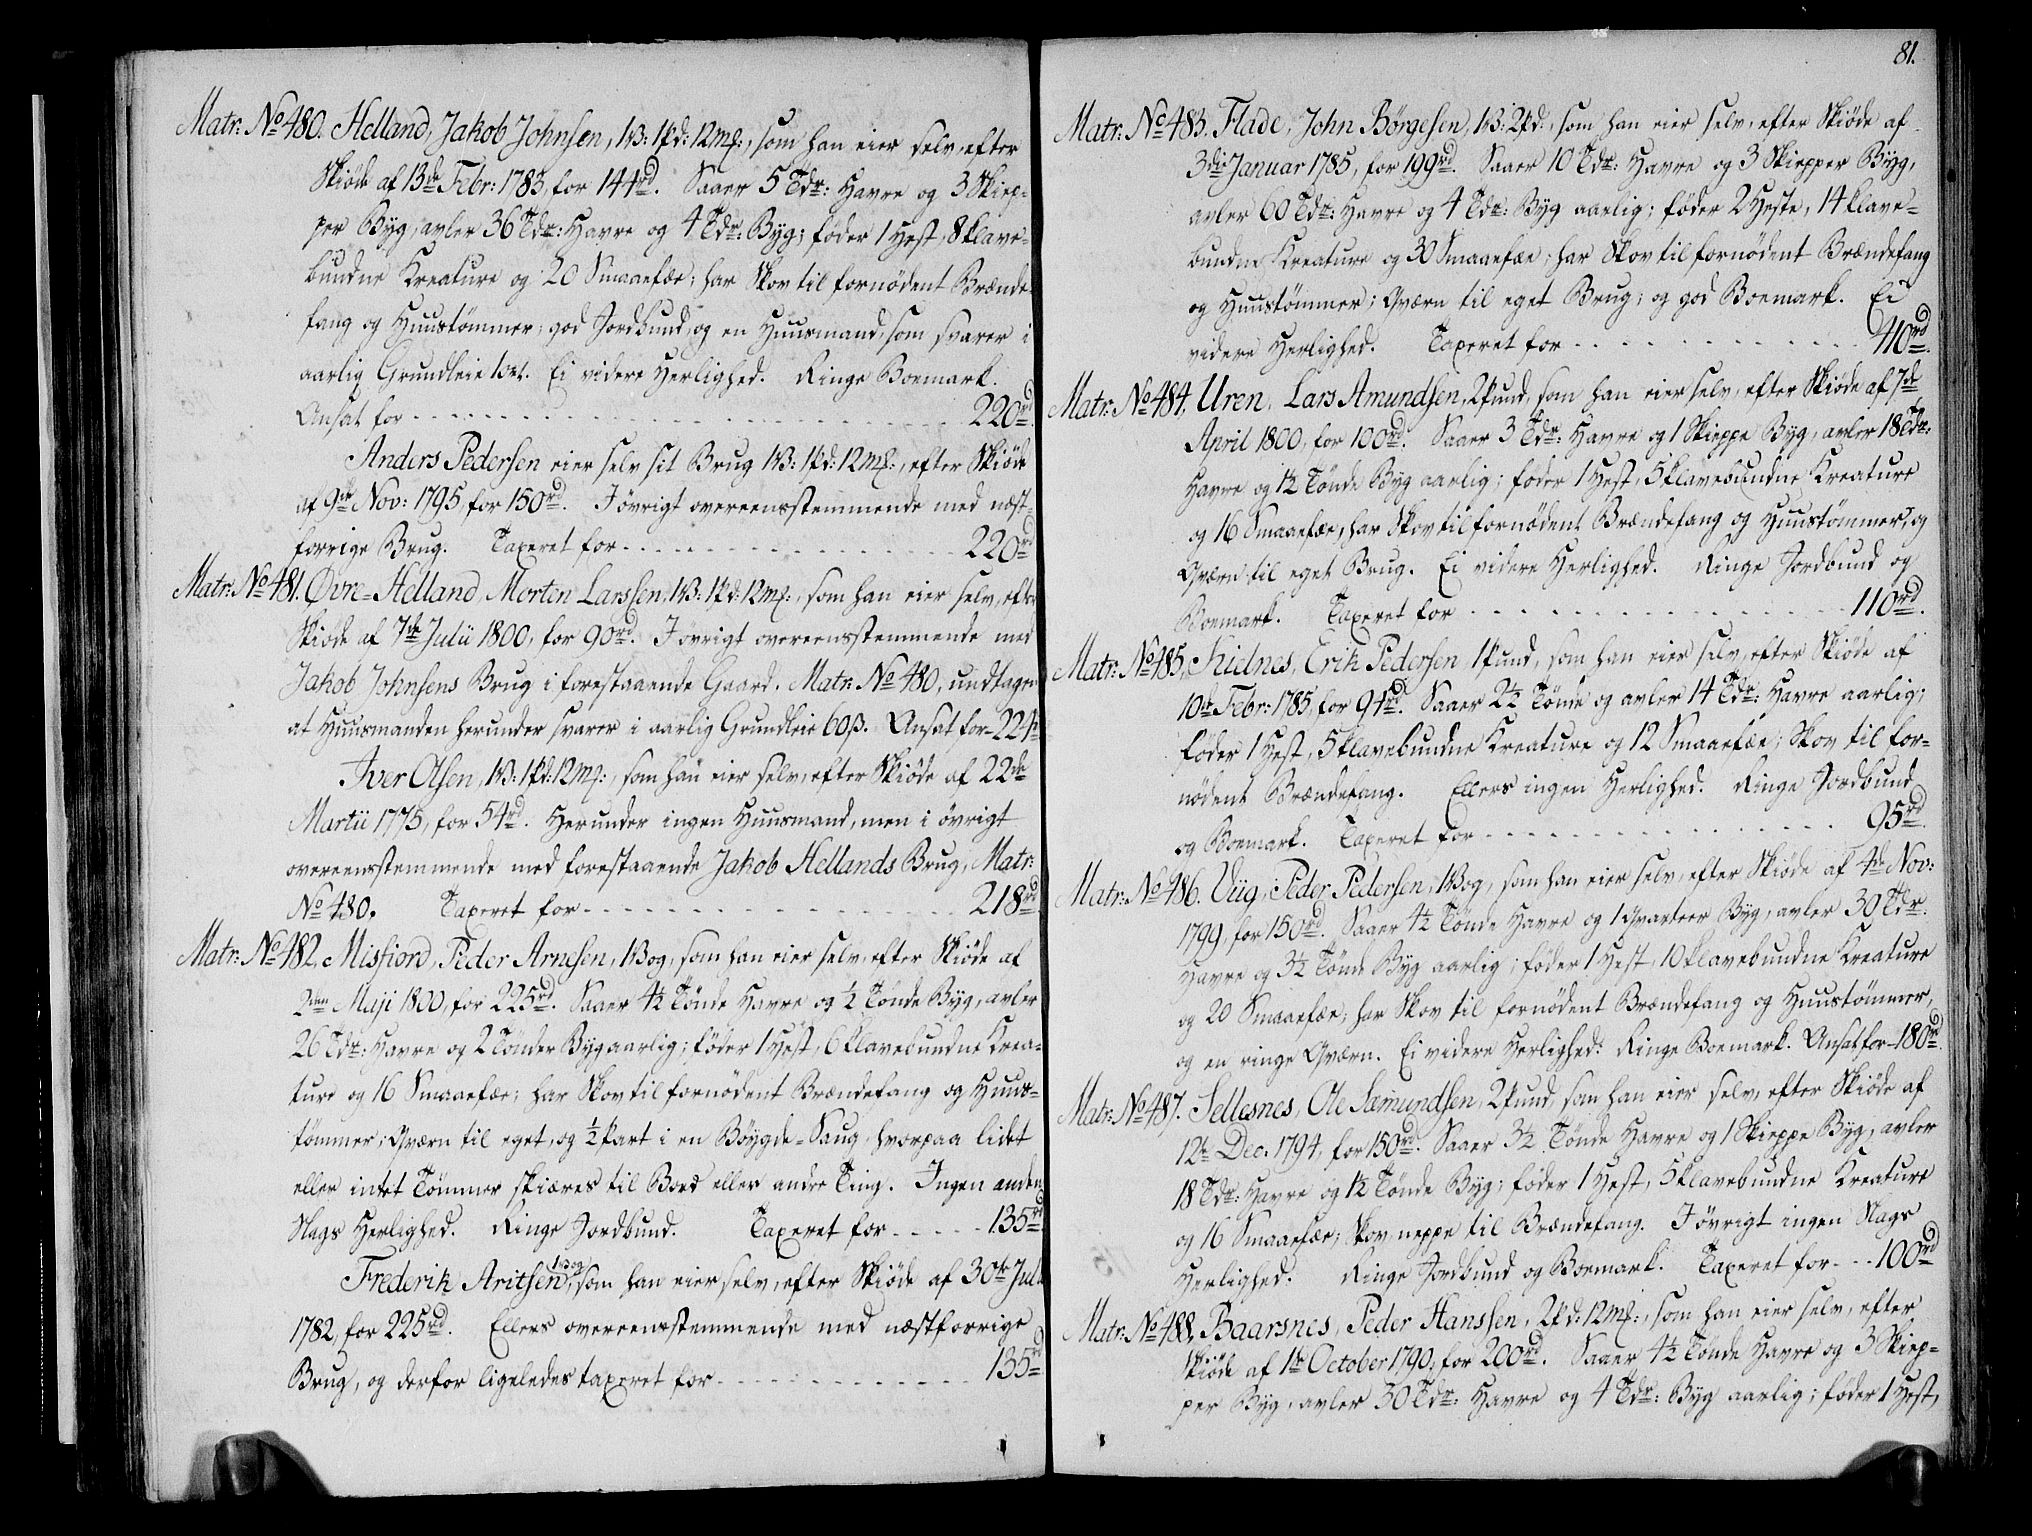 Matr: No 480. Helland, Jakob Johnsen, 1B: 1pd: 12m&: som han eier selv, efter
Skiøde af 13de Febr: 1783, for 144rd. Saaer 5 Tdr: Havre og 3 Skiep-
per Byg, avler 36 Tdr: Havre og 4 Tdr: Byg; føder 1 Hest, 8 klave-
bundne Kreature og 20 Smaaefæe; har Skov til fornødent Brænde-
fang og Huustømmer; god Jordbund, og en Huusmand, som svarer i
aarlig Grundleie 1ort. Ei videre Herlighed. Ringe Boemark.
Ansat for - - - 220rd.
Anders Pedersen eier selv sit Brug 1B: 1pd: 12m&:, efter Skiøde
af 9de Nov: 1795, for 150rd. I øvrigt overeensstemmende med næst-
forrige Brug. Taxeret for - - - 220rd
Matr: No 481. Øvre-Helland, Morten Larssen, 1B: 1pd: 12m&:, som han eier selv, efter
Skiøde af 7de Julii 1800, for 90rd. I øvrigt overeensstemmende med
Jakob Johnsens Brug i forestaaende Gaard, Matr: No 480, undtagen
at Huusmanden herunder svarer i aarlig Grundleie 60ß. Ansat for - 221
Iver Olsen, 1B: 1pd: 12m&:, som han eier selv, efter Skiøde af 22de
Martii 1775, for 54rd. Herunder ingen Huusmand, men i øvrigt
overeensstemmende med forestaaende Jakob Hellands Brug, Matr:
No 480. Taxeret for - - - 218rd
Matr: No 482, Misfiord, Peder Arnesen, 1Bog, som han eier selv, efter Skiøde af
2den Maji 1800, for 225rd. Saaer 4½ Tønde Havre og ½ Tønde Byg, avler
26 Tdr: Havre og 2 Tønder Byg aarlig; føder 1 Hest, 6 klavebundne Krea-
ture og 16 Smaaefæe; har Skov til fornødent Brændefang og Huus-
tømmer; Qværn til eget, og ½ Part i en Böygde-Saug, hvorpaa lidet
eller intet Tømmer skiæres til Bord eller andre Ting. Ingen anden
Slags Herlighed. Ringe Jordbund. Taxeret for - - - 135rd
Frederik Aritsen, 1Bog, som han eier selv, efter Skiøde af 30te Juli
1782, for 225rd. Ellers overeensstemmende med næstforrige
Brug, og derfor ligeledes taxeret for - - - 135rd
81.
Matr: No 483. Flade, John Børgesen, 1B: 2pd:, som han eier selv, efter Skiøde af
3die Januar 1785, for 199rd. Saaer 10 Tdr: Havre og 3 Skiepper Byg,
avler 60 Tdr: Havre og 4 Tdr: Byg aarlig; føder 2 Heste, 14 klave-
bundne Kreature og 30 Smaaefæe; har Skov til fornødent Brændefang
og Huustømmer; Qværn til eget Brug; og god Boemark. Ei
videre Herlighed. Taxeret for - - - 410rd.
Matr: No 484, Uren, Lars Amundsen, 2 pund, som han eier selv, efter Skiøde af 7de
April 1800, for 100rd. Saaer 3 Tdr: Havre og 1 Skieppe Byg, avler 18 Tdr:
Havre og 1½ Tønde Byg aarlig; føder 1 Hest, 5 klavebundne Kreature
og 16 Smaaefæe, har Skov til fornødent Brændefang og Huustømmer, og
Qværn til eget Brug. Ei videre Herlighed. Ringe Jordbund og
Boemark. Taxeret for - - - 110rd.
Matr: No 485, Skidnes, Erik Pedersen, 1 pund, som han eier selv, efter Skiøde af
10de Febr: 1785, for 94rd. Saaer 2½ Tønde og avler 14 Tdr: Havre aarlig;
føder 1 Hest, 5 klavebundne Kreature og 12 Smaaefæe; Skov til for-
nødent Brændefang. Ellers ingen Herlighed. Ringe Jordbund
og Boemark. Taxeret for - - - 95rd.
Matr: No 486. Viig, Peder Pedersen, 1Bog, som han eier selv, efter Skiøde af 4de Nov:
1799, for 150rd. Saaer 4½ Tønde Havre og 1 Qvarteer Byg, avler 30 Tdr.
Havre og 3½ Tønde Byg aarlig; føder 1 Hest, 10 klavebundne Kreature
og 20 Smaaefæe, har Skov til fornødent Brændefang og Huustømmer,
og en ringe Qværn. Ei videre Herlighed. Ringe Boemark. Ansat for - 180rd
Matr: No 487. Sellesnes, Ole Sæmundsen, 2 pund, som han eier selv, efter Skiøde af
12te Dec: 1794, for 150rd. Saaer 3½ Tønde Havre og 1 Skieppe Byg, avler
18 Tdr: Havre og 1½ Tønde Byg; føder 1 Hest, 5 klavebundne Kreature
og 16 Smaaefæe; Skov neppe til Brændefang. I øvrigt ingen Slags
Herlighed. Ringe Jordbund og Boemark. Taxeret for - - - 100rd
Matr: No 488, Baarsnes, Peder Hanssen, 2pd: 12m&:, som han eier selv, efter
Skiøde af 1te October 1790, for 200rd. Saaer 4½ Tønde Havre og 3 Skiep-
per Byg, avler 30 Tdr: Havre og 4 Tdr: Byg aarlig; føder 1 Hest,